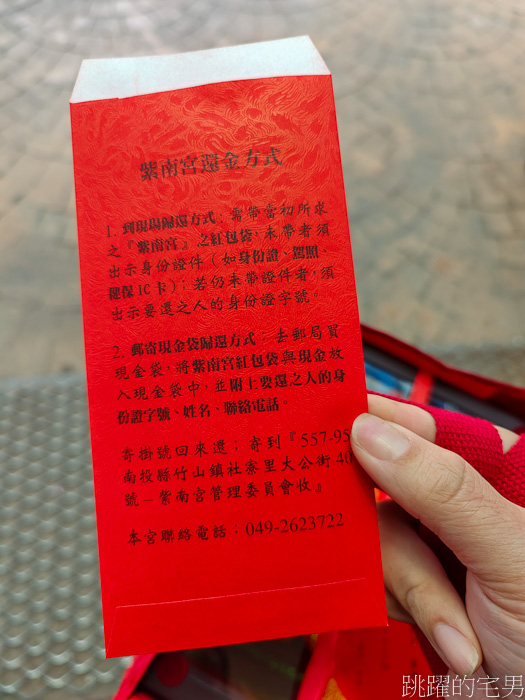 紫南宮還金方式
1. 到現場歸還方式：需帶當初所求
之『紫南宮』之紅包袋，未帶者須
出示身份證件（如身份證、駕照、
健保IC卡）；若仍未帶證件者，須
出示要還之人的身份證字號。
2. 郵寄現金袋歸還方式：去郵局買
現金袋，將紫南宮紅包袋與現金放
入現金袋中，並附上要還之人的身
份證字號、姓名、聯絡電話。
寄掛號回來還；寄到『557-95
南投縣竹山鎮社寮里大公街40
號－紫南宮管理委員會收』
本宮聯絡電話：049-2623722
跳躍的宅男